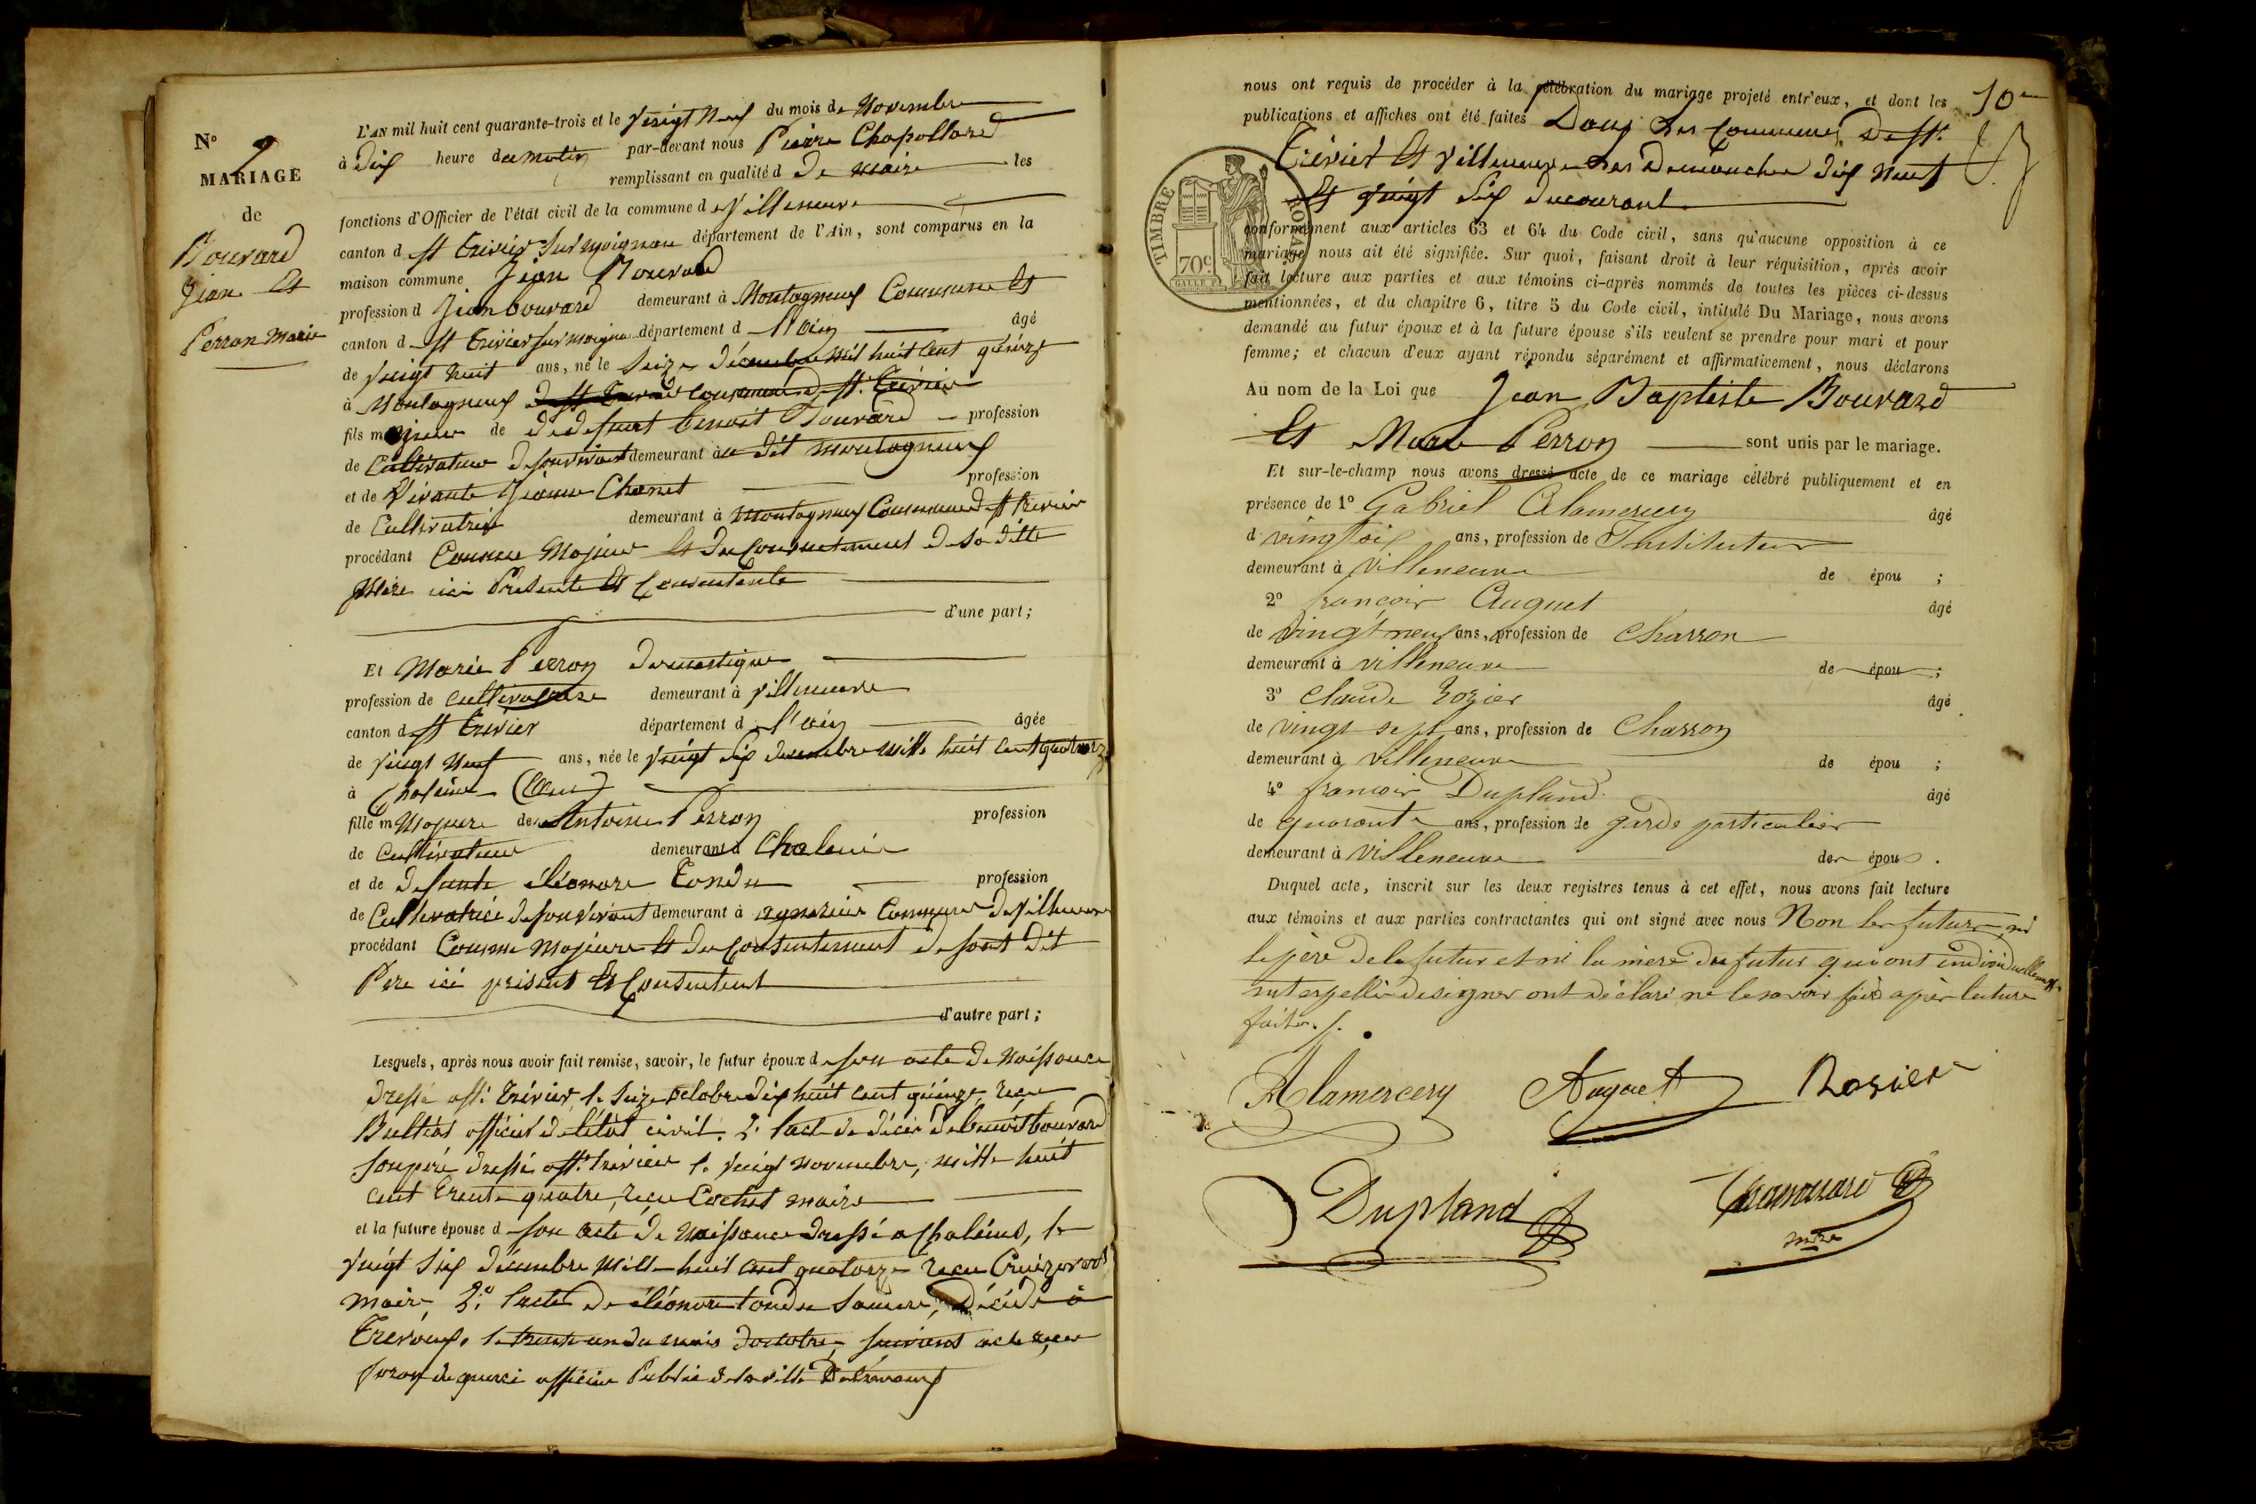 N° 9
MARIAGE
de
Bouvard
Jean Et
Perron Marie
L'AN mil huit cent quarante-trois et le vingt Neuf du mois de Novembre
à dix heure du matin par-devant nous Pierre Chapollard
remplissant en qualité d de maire les
fonctions d'Officier de l'état civil de la commune de villeneuve
canton d St trivier Sur moignan département de l'Ain, sont comparus en la
maison commune Jean Bouvard
profession d Jean bouvard demeurant à Montagneux Commune Et
canton d St trivier sur moignan département d l'Ain âgé
de vingt huit ans, né le Seize décembre mil huit cent quinze
à Montagneux de St trivier commune de St. trivier
fils majeur de de defunt benoit Bouvard profession
de Cultivateur de son vivant demeurant au dit montagneux
et de vivante Jeanne Chanet profession
de Cultivatrice demeurant à montagneux Commune de St trivier
procédant Comme Majeur Et du Consentement de sa ditte
Mère ici Présente Et Consentente
d'une part;
Et Marie Perron domestique
profession de cultivatrice demeurant à villeneuve
canton d St trivier département d l'Ain âgée
de vingt Neuf ans, née le vingt six decembre mille huit cent quatorze
à Chaleins (Ain)
fille m Majeure de Antoine Perron profession
de Cultivateur demeurant à Chaleins
et de defunte éléonore Tondu profession
de Cultivatrice de son vivant demeurant à agnereins Commune de villeneuve
procédant Comme majeure Et du Consentement de sont dit
Pere ici présent Et Consentent
d'autre part;
Lesquels, après nous avoir fait remise, savoir, le futur époux de son acte de Naissance
dressé à St. trivier, le Seize octobre dix huit cent quinze, reçu
officier de l'état civil. 2° l'acte de décès de benoit bouvard
son père dressé à St. trivier le vingt novembre, mille huit
cent trente quatre, reçu Cochet maire
et la future épouse d son acte de Naissance dressé a Chaleins, le
vingt six décembre mille huit cent quatorze reçu
maire, 2° l'acte de éléonore tondu sa mere, Décédé à
Trevoux, le trente un du mois d'octobre, suivant acte reçu
officier Public de la ville de trevoux
10e
nous ont requis de procéder à la célébration du mariage projeté entr'eux, et dont les
publications et affiches ont été faites Dans les Communes de St.
Trivier Et villeneuve les dimanches dix neuf
Et vingt six du courant
TIMBRE ROYAL
70c
conformément aux articles 63 et 64 du Code civil, sans qu'aucune opposition à ce
mariage nous ait été signifiée. Sur quoi, faisant droit à leur réquisition, après avoir
fait lecture aux parties et aux témoins ci-après nommés de toutes les pièces ci-dessus
mentionnées, et du chapitre 6, titre 5 du Code civil, intitulé Du Mariage, nous avons
demandé au futur époux et à la future épouse s'ils veulent se prendre pour mari et pour
femme; et chacun d'eux ayant répondu séparément et affirmativement, nous déclarons
Au nom de la Loi que Jean Baptiste Bouvard
Et Marie Perron sont unis par le mariage.
Et sur-le-champ nous avons dressé acte de ce mariage célébré publiquement et en
présence de 1° Gabriel Alamercery âgé
d ans, profession de Instituteur
demeurant à villeneuve de épou ;
2° françois Auguet âgé
de vingt neuf ans, profession de charron
demeurant à villeneuve de épou ;
3° claude Rozier âgé
de vingt sept ans, profession de charron
demeurant à villeneuve de épou ;
4° françois Dupland âgé
de quarante ans, profession de garde particulier
demeurant à villeneuve des épous .
Duquel acte, inscrit sur les deux registres tenus à cet effet, nous avons fait lecture
aux témoins et aux parties contractantes qui ont signé avec nous Non les futurs ni
le père de la futur et ni la mère du futur qui ont individuellement
interpellé de signer ont déclaré ne le savoir faire après lecture
faite.
Alamercery Auguet Rozier
Dupland
mre